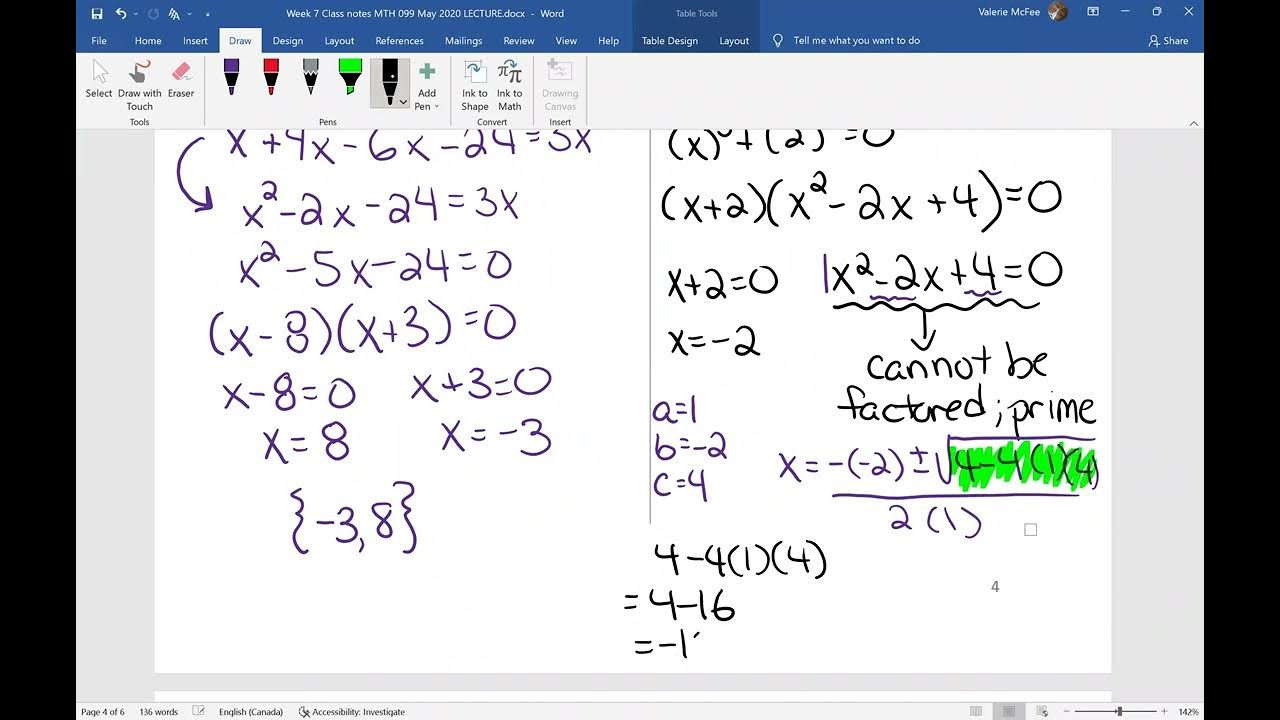 Week 7 Class notes MTH 099 May 2020 LECTURE.docx - Word
Table Tools
Valerie McFee
File Home Insert Draw Design Layout References Mailings Review View Help Table Design Layout Tell me what you want to do Share
Select Draw with Touch Eraser Add Pen Ink to Shape Ink to Math Drawing Canvas
Tools Pens Convert Insert
x²-2x-24=3x
x²-5x-24=0
(x-8)(x+3)=0
x-8=0 x+3=0
x=8 x=-3
{-3,8}
(x+2)(x²-2x+4)=0
x+2=0 1x²-2x+4=0
x=-2
cannot be
factored; prime
a=1
b=-2
c=4
x=-(-2)±√4-4(1)(4)
2(1)
4-4(1)(4)
=4-16
=-1
4
Page 4 of 6 136 words English (Canada) Accessibility: Investigate 142%